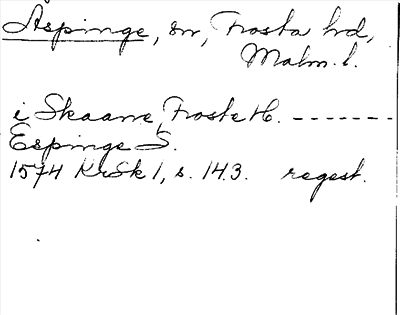 Äspinge, sn, Frosta hd,
Malm. l.
i Skaane, Froste H. -------
Espinge S.
1574 KrSk 1, s. 143. regest.